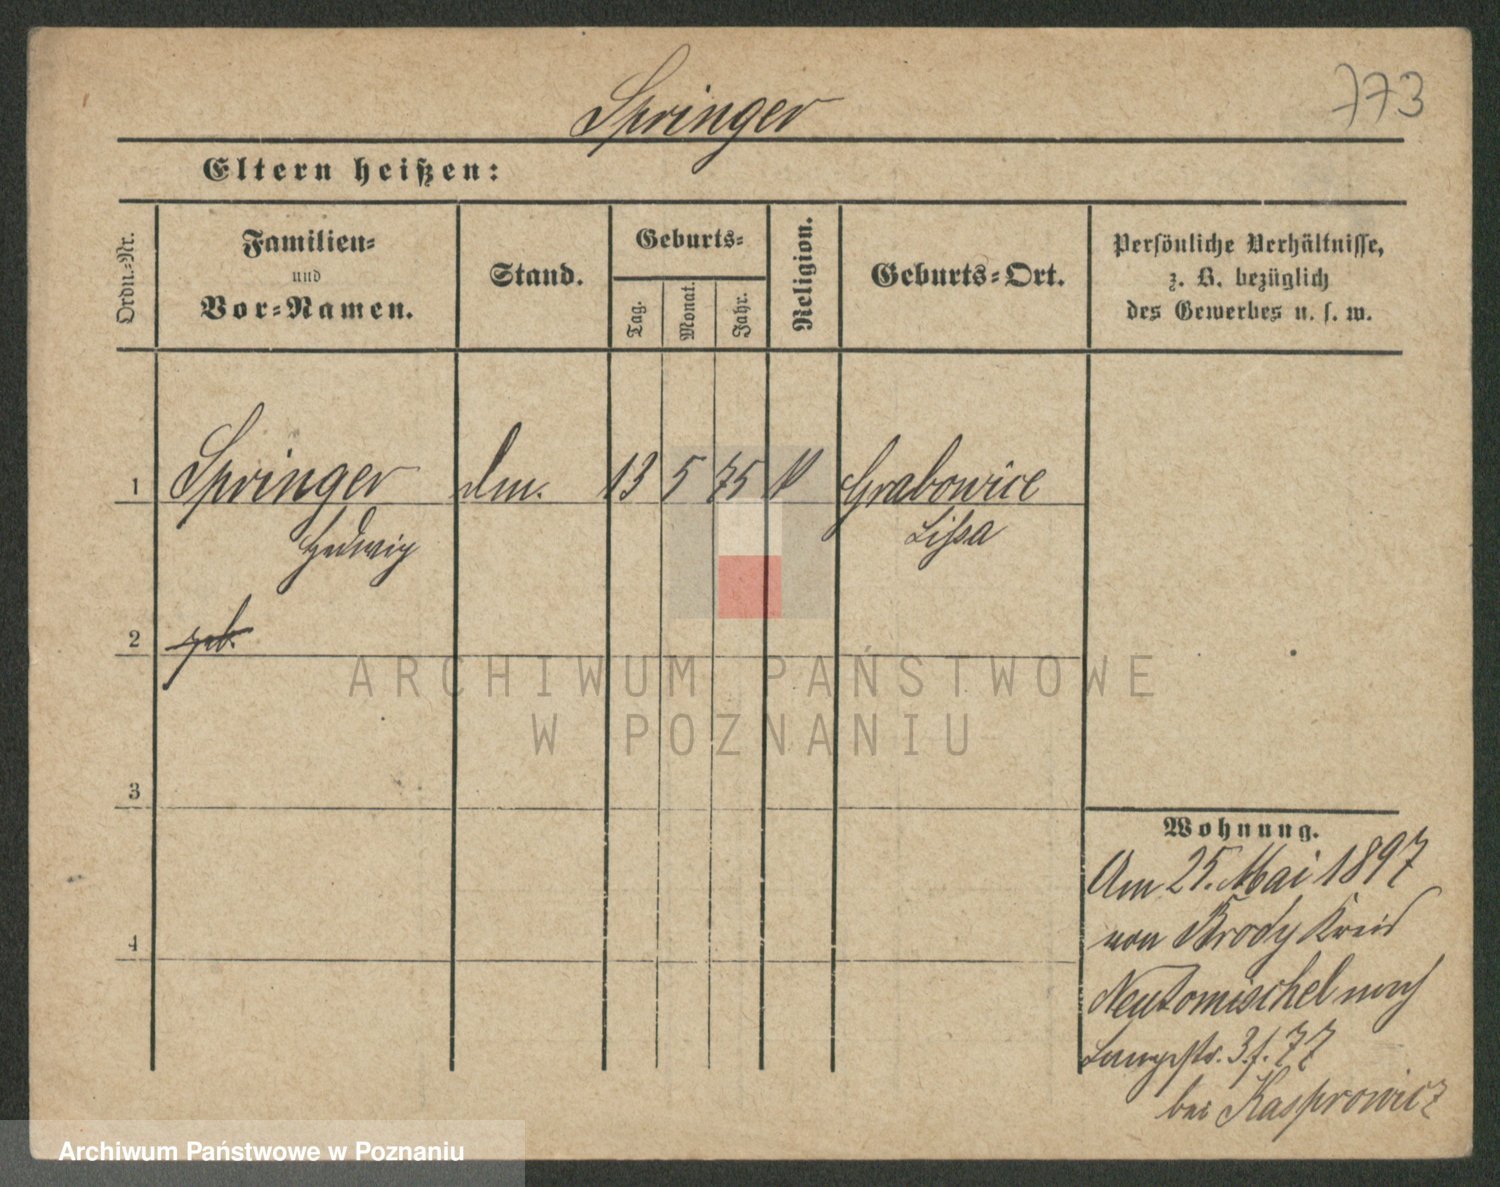 773
Springer
Eltern heißen:
Ordn.-Nr.
Familien-
und
Vor-Namen.
Stand.
Geburts-
Tag.
Monat.
Jahr.
Religion.
Geburts-Ort.
Persönliche Verhältnisse,
z. B. bezüglich
des Gewerbes u. s. w.
1 Springer 13 5 75 Grabowice
Hedwig Lissa
2 geb.
3
4
Wohnung.
Am 25. Mai 1897
von Brody Kreis
Neutomischel nach
Langestr. 3. f. 77
bei Kasprowicz
ARCHIWUM PAŃSTWOWE
W POZNANIU
Archiwum Państwowe w Poznaniu